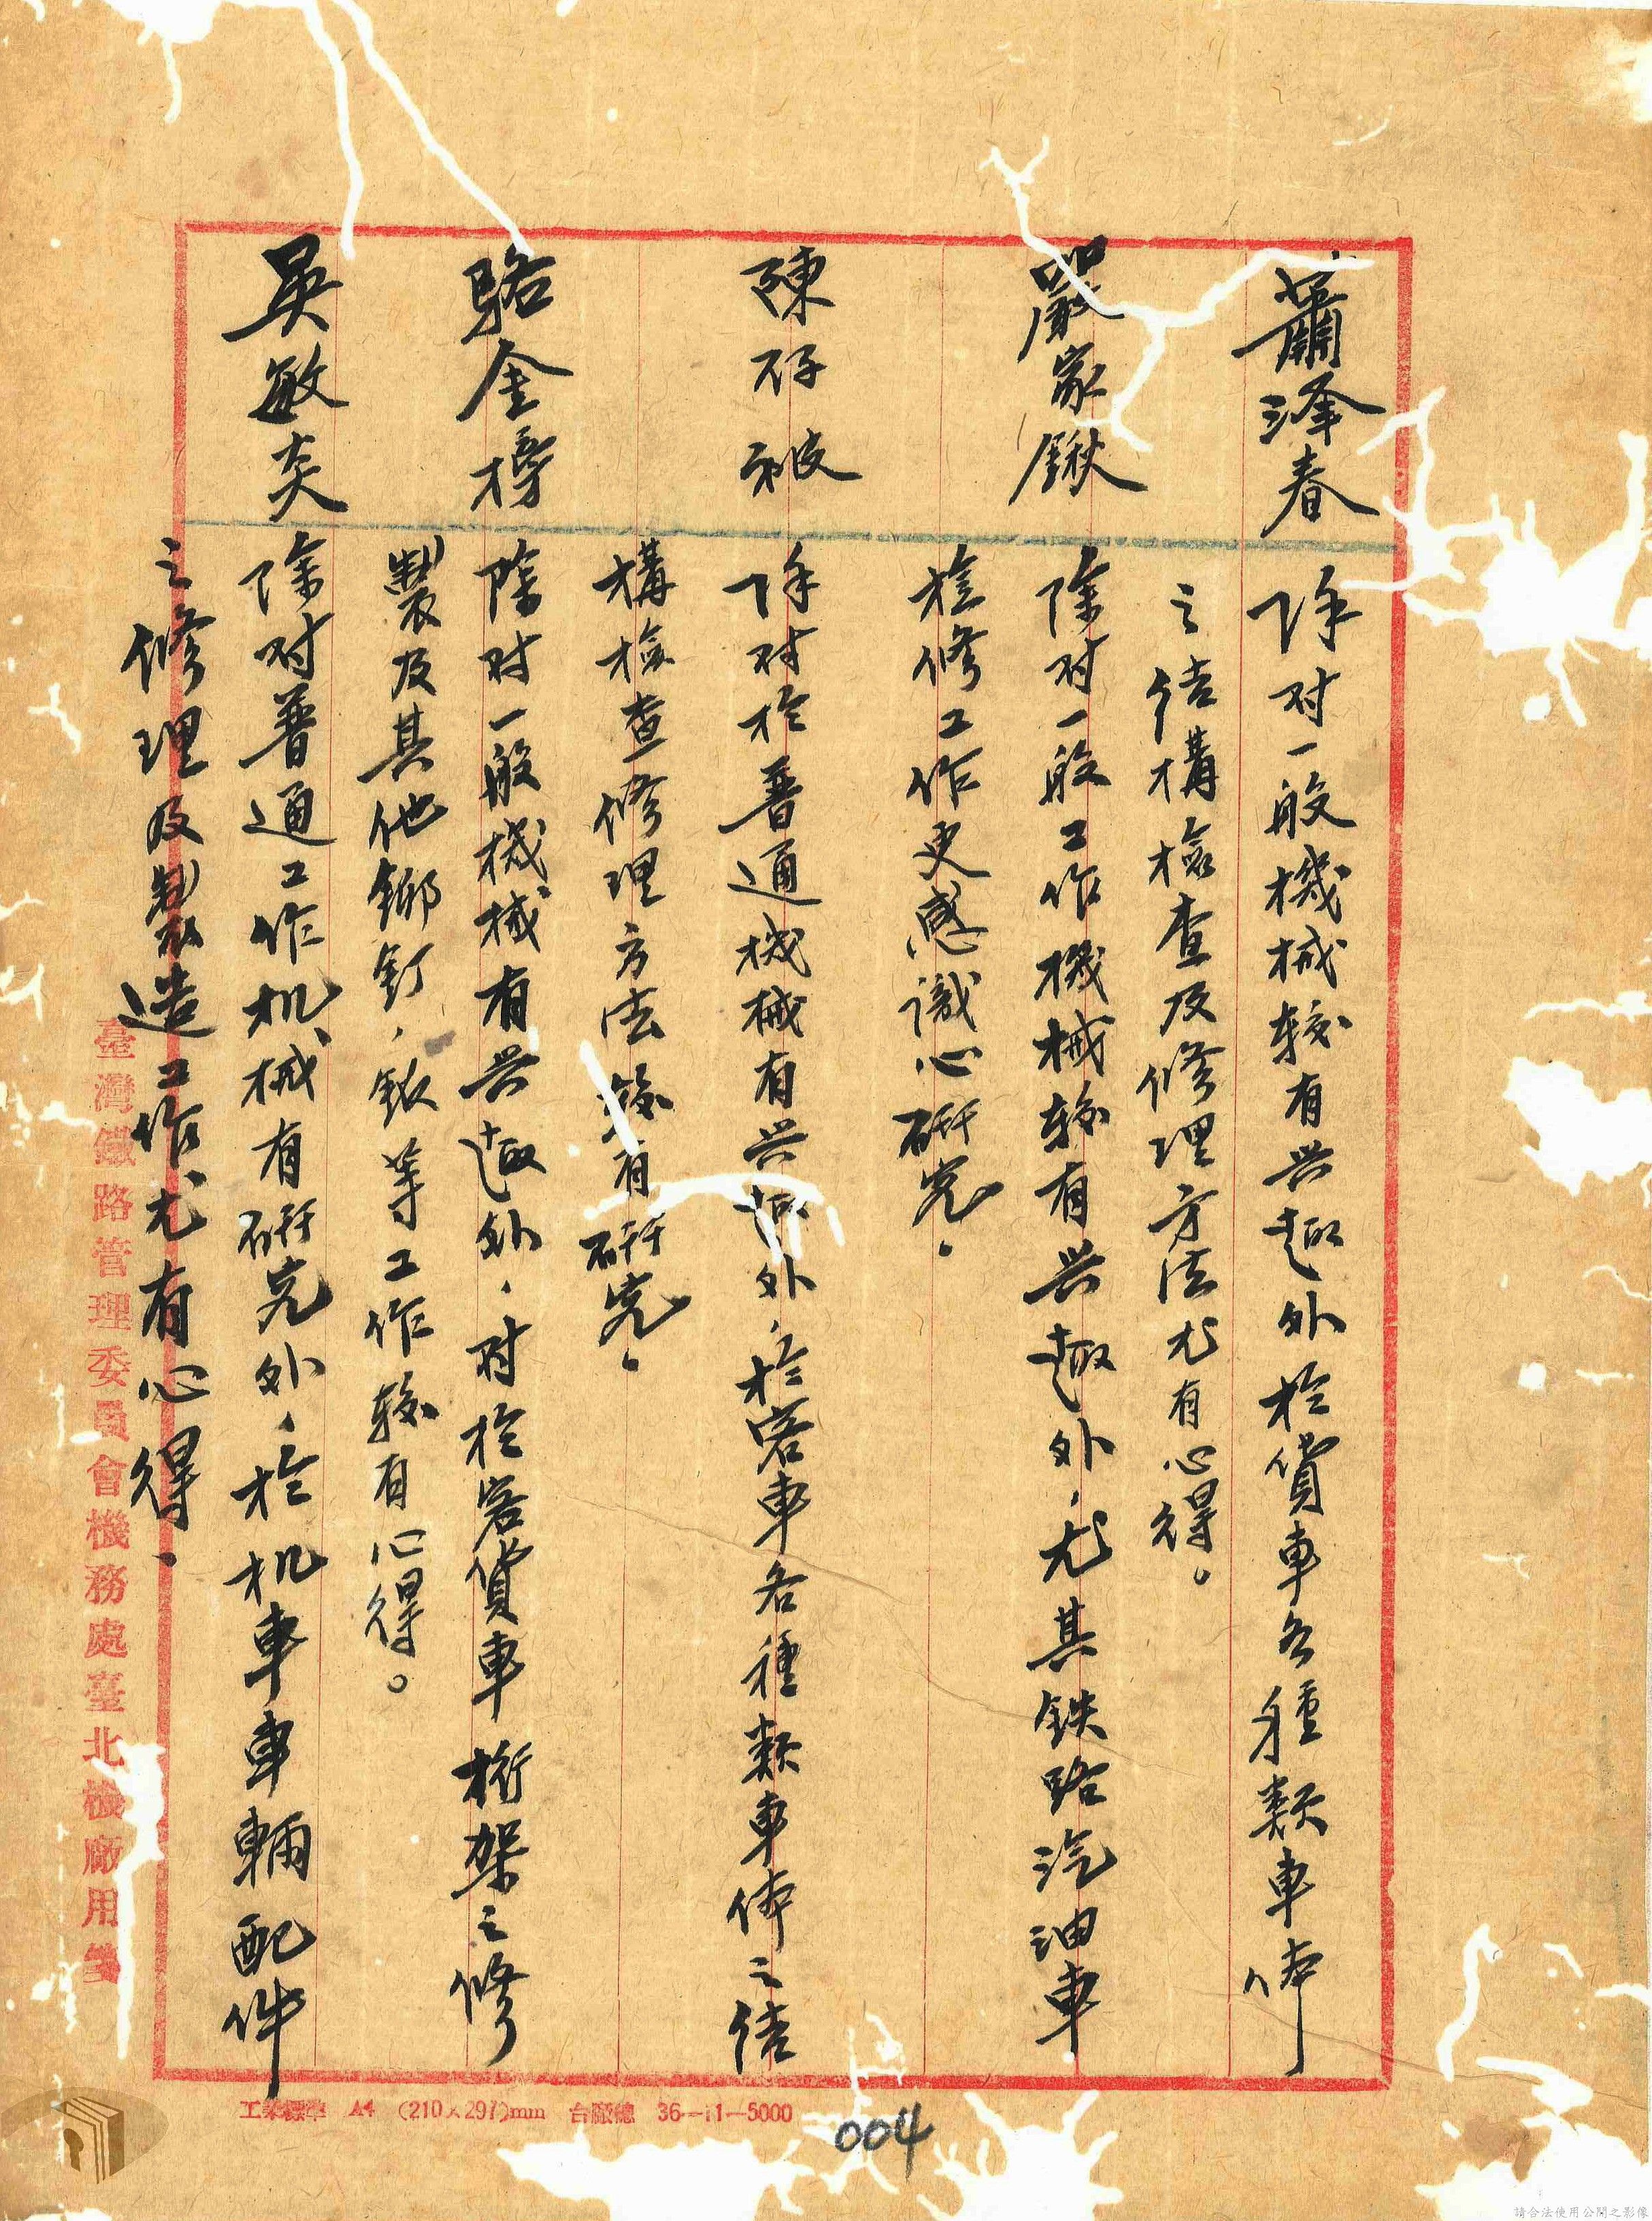 蕭澤春
除对一般機械較有兴趣外於貨車各種類車体
之结構檢查及修理方法尤有心得。
嚴家鍬
除对一般工作機械較有兴趣外，尤其鉄路汽油車
檢修工作更感識心研究。
陳石被
除对於普通機械有兴趣外，於客車各種類車体之结
構檢查修理方法較有研究。
駱金榜
除对一般機械有兴趣外，对於客貨車桁架之修
製及其他鉚釘，鈑等工作較有心得。
吴敏炎
除对普通工作机械有研究外，於机車車輛配件
之修理及製造工作尤有心得。
臺灣鐵路管理委員會機務處臺北機廠用箋
工業標準 A4 (210×297)mm 台廠總 36—11—5000
004
請合法使用公開之影像